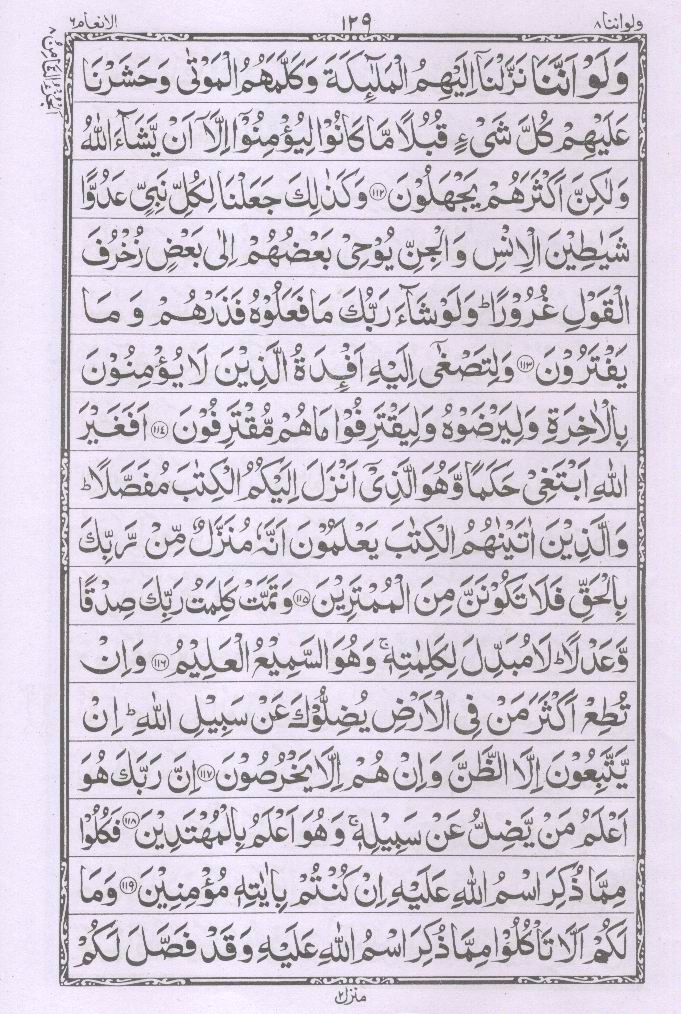 ولواننا ۸
۱۲۹
الانعام ۶
وَلَوْ اَنَّنَا نَزَّلْنَآ اِلَيْهِمُ الْمَلٰٓئِكَةَ وَكَلَّمَهُمُ الْمَوْتٰى وَحَشَرْنَا
عَلَيْهِمْ كُلَّ شَىْءٍ قُبُلًا مَّا كَانُوْا لِيُؤْمِنُوْٓا اِلَّآ اَنْ يَّشَآءَ اللّٰهُ
وَلٰكِنَّ اَكْثَرَهُمْ يَجْهَلُوْنَ ۝۱۱۲ وَكَذٰلِكَ جَعَلْنَا لِكُلِّ نَبِىٍّ عَدُوًّا
شَيٰطِيْنَ الْاِنْسِ وَالْجِنِّ يُوْحِىْ بَعْضُهُمْ اِلٰى بَعْضٍ زُخْرُفَ
الْقَوْلِ غُرُوْرًا ؕ وَلَوْ شَآءَ رَبُّكَ مَا فَعَلُوْهُ فَذَرْهُمْ وَمَا
يَفْتَرُوْنَ ۝۱۱۳ وَلِتَصْغٰٓى اِلَيْهِ اَفْـِٕدَةُ الَّذِيْنَ لَا يُؤْمِنُوْنَ
بِالْاٰخِرَةِ وَلِيَرْضَوْهُ وَلِيَقْتَرِفُوْا مَا هُمْ مُّقْتَرِفُوْنَ ۝۱۱٤ اَفَغَيْرَ
اللّٰهِ اَبْتَغِىْ حَكَمًا وَّهُوَ الَّذِىْٓ اَنْزَلَ اِلَيْكُمُ الْكِتٰبَ مُفَصَّلًا ؕ
وَالَّذِيْنَ اٰتَيْنٰهُمُ الْكِتٰبَ يَعْلَمُوْنَ اَنَّهٗ مُنَزَّلٌ مِّنْ رَّبِّكَ
بِالْحَقِّ فَلَا تَكُوْنَنَّ مِنَ الْمُمْتَرِيْنَ ۝۱۱۵ وَتَمَّتْ كَلِمَتُ رَبِّكَ صِدْقًا
وَّعَدْلًا ؕ لَا مُبَدِّلَ لِكَلِمٰتِهٖ ۚ وَهُوَ السَّمِيْعُ الْعَلِيْمُ ۝۱۱۶ وَاِنْ
تُطِعْ اَكْثَرَ مَنْ فِى الْاَرْضِ يُضِلُّوْكَ عَنْ سَبِيْلِ اللّٰهِ ؕ اِنْ
يَّتَّبِعُوْنَ اِلَّا الظَّنَّ وَاِنْ هُمْ اِلَّا يَخْرُصُوْنَ ۝۱۱۷ اِنَّ رَبَّكَ هُوَ
اَعْلَمُ مَنْ يَّضِلُّ عَنْ سَبِيْلِهٖ ۚ وَهُوَ اَعْلَمُ بِالْمُهْتَدِيْنَ ۝۱۱۸ فَكُلُوْا
مِمَّا ذُكِرَ اسْمُ اللّٰهِ عَلَيْهِ اِنْ كُنْتُمْ بِاٰيٰتِهٖ مُؤْمِنِيْنَ ۝۱۱۹ وَمَا
لَكُمْ اَلَّا تَاْكُلُوْا مِمَّا ذُكِرَ اسْمُ اللّٰهِ عَلَيْهِ وَقَدْ فَصَّلَ لَكُمْ
منزل ۲